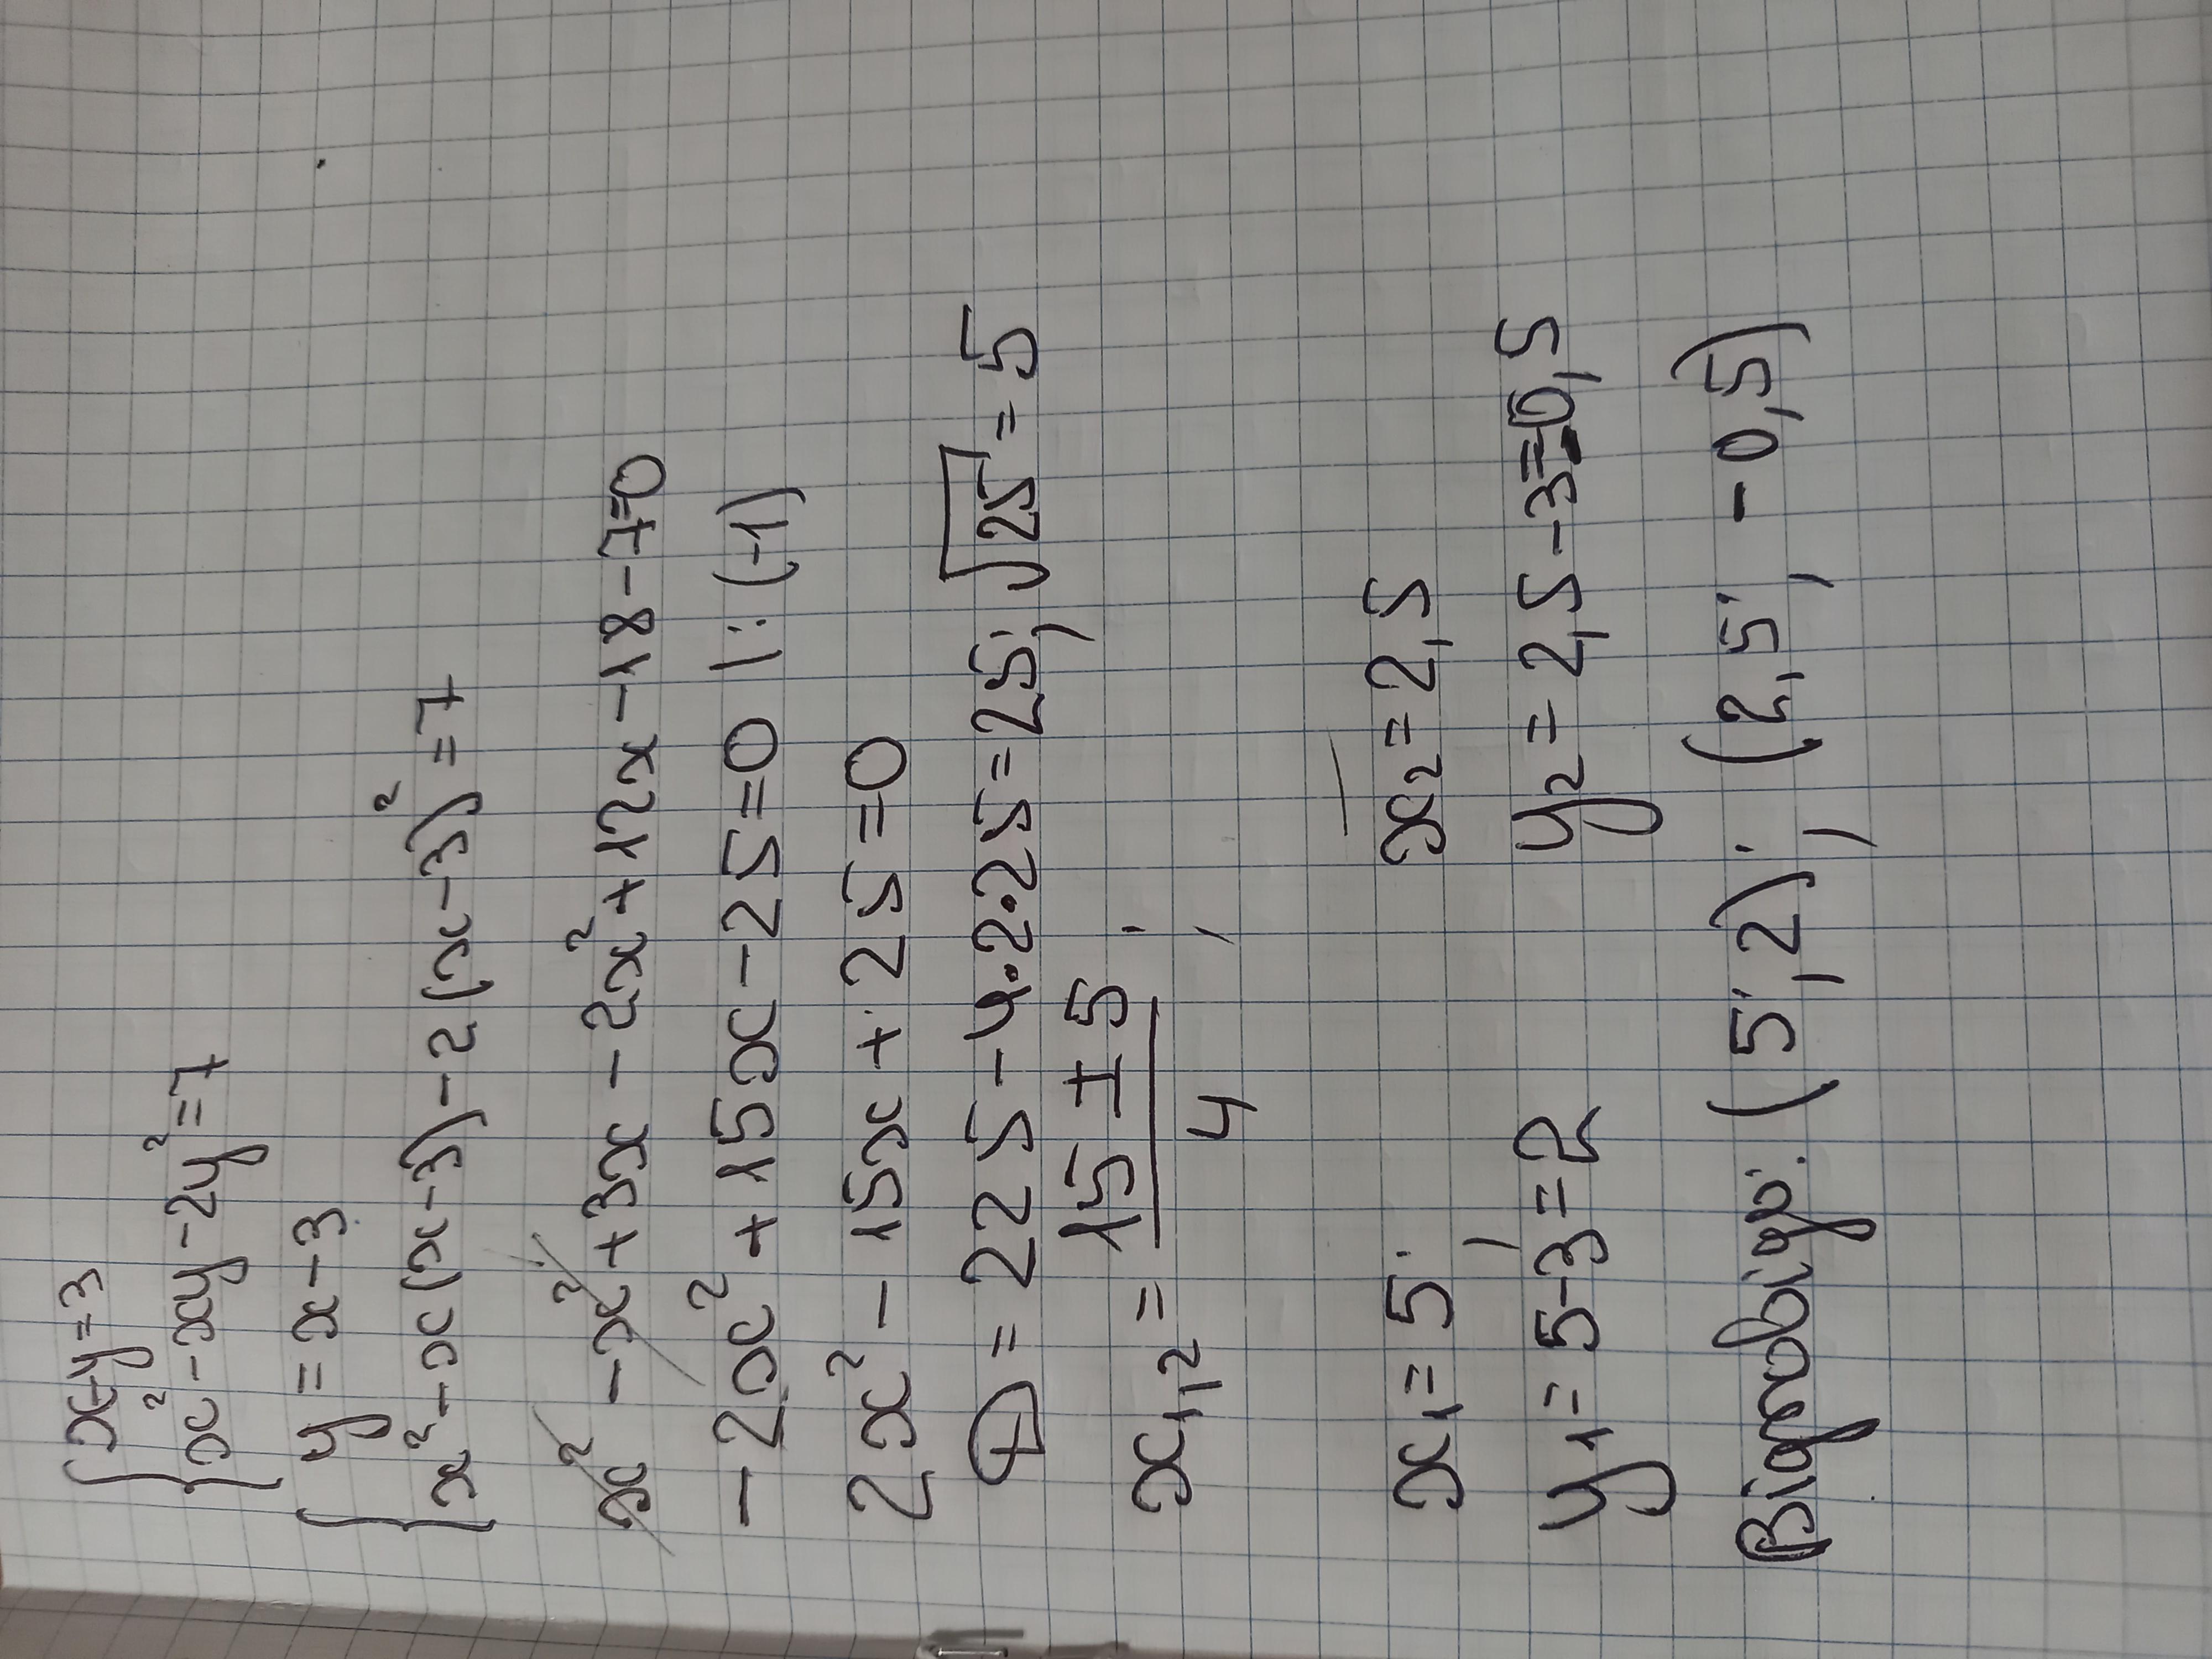 { x-y=3
x²-xy-2y²=7
{ y=x-3
x²-x(x-3)-2(x-3)²=7
x²-x²+3x-2x²+12x-18-7=0
-2x²+15x-25=0 |:(-1)
2x²-15x+25=0
D=225-4·2·25=25; √25=5
x₁,₂ = (15±5)/4;
x₁=5; x₂=2,5
y₁=5-3=2 y₂=2,5-3=-0,5
Відповідь: (5;2); (2,5; -0,5)